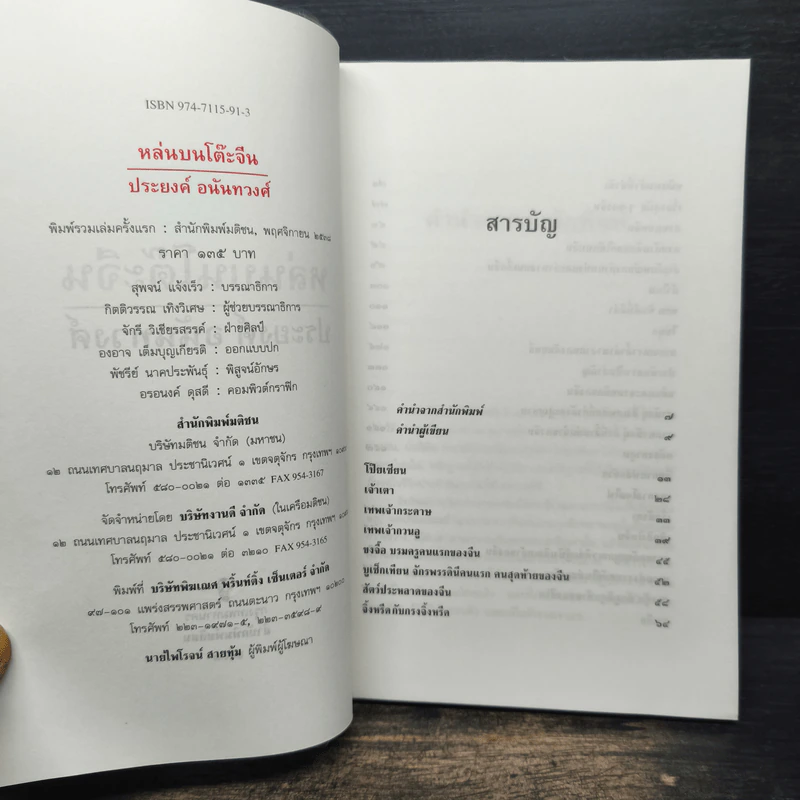 ISBN 974-7115-91-3
หล่นบนโต๊ะจีน
ประยงค์ อนันทวงศ์
พิมพ์รวมเล่มครั้งแรก : สำนักพิมพ์มติชน, พฤศจิกายน ๒๕๓๘
ราคา ๑๓๕ บาท
สุพจน์ แจ้งเร็ว : บรรณาธิการ
กิตติวรรณ เทิงวิเศษ : ผู้ช่วยบรรณาธิการ
จักรี วิเชียรสรรค์ : ฝ่ายศิลป์
องอาจ เต็มบุญเกียรติ : ออกแบบปก
พัชรีย์ นาคประพันธุ์ : พิสูจน์อักษร
อรอนงค์ ดุสดี : คอมพิวต์กราฟิก
สำนักพิมพ์มติชน
บริษัทมติชน จำกัด (มหาชน)
๑๒ ถนนเทศบาลนฤมาล ประชานิเวศน์ ๑ เขตจตุจักร กรุงเทพฯ ๑๐๙๐๐
โทรศัพท์ ๕๘๐-๐๐๒๑ ต่อ ๑๓๓๕ FAX 954-3167
จัดจำหน่ายโดย บริษัทงานดี จำกัด (ในเครือมติชน)
๑๒ ถนนเทศบาลนฤมาล ประชานิเวศน์ ๑ เขตจตุจักร กรุงเทพฯ ๑๐๙๐๐
โทรศัพท์ ๕๘๐-๐๐๒๑ ต่อ ๓๒๑๐ FAX 954-3165
พิมพ์ที่ บริษัทพิฆเณศ พริ้นท์ติ้ง เซ็นเตอร์ จำกัด
๙๗-๑๐๑ แพร่งสรรพศาสตร์ ถนนตะนาว กรุงเทพฯ ๑๐๒๐๐
โทรศัพท์ ๒๒๓-๑๙๗๑-๕, ๒๒๓-๓๕๙๘-๙
นายไพโรจน์ สายทุ้ม ผู้พิมพ์ผู้โฆษณา
สารบัญ
คำนำจากสำนักพิมพ์ ๗
คำนำผู้เขียน ๙
โป๊ยเซียน ๑๓
เจ้าเตา ๒๔
เทพเจ้ากระดาษ ๓๓
เทพเจ้ากวนอู ๓๙
ขงจื้อ บรมครูคนแรกของจีน ๔๕
บูเช็กเทียน จักรพรรดินีคนแรก คนสุดท้ายของจีน ๕๒
สัตว์ประหลาดของจีน ๕๘
จิ้งหรีดกับกรงจิ้งหรีด ๖๔